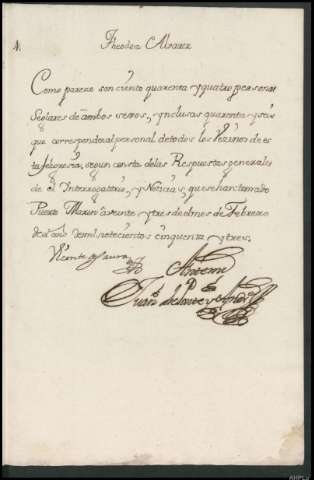 1.
Theodora Alvarez
Como parece son ciento quarenta y quatro personas
Seglares de ambos sexos, ynclusas quarenta y seis
que corresponden al personal de todos los Vezinos de es
ta feligresia, segun consta de las Respuestas generales
de el Interrogatorio, y Noticias, que se han tomado
Puerto Marin a veinte y tres de el mes de Febrero
de el año de mil setecientos cinquenta y tres.
Vicente de
Antemi
Juan
AHPLu